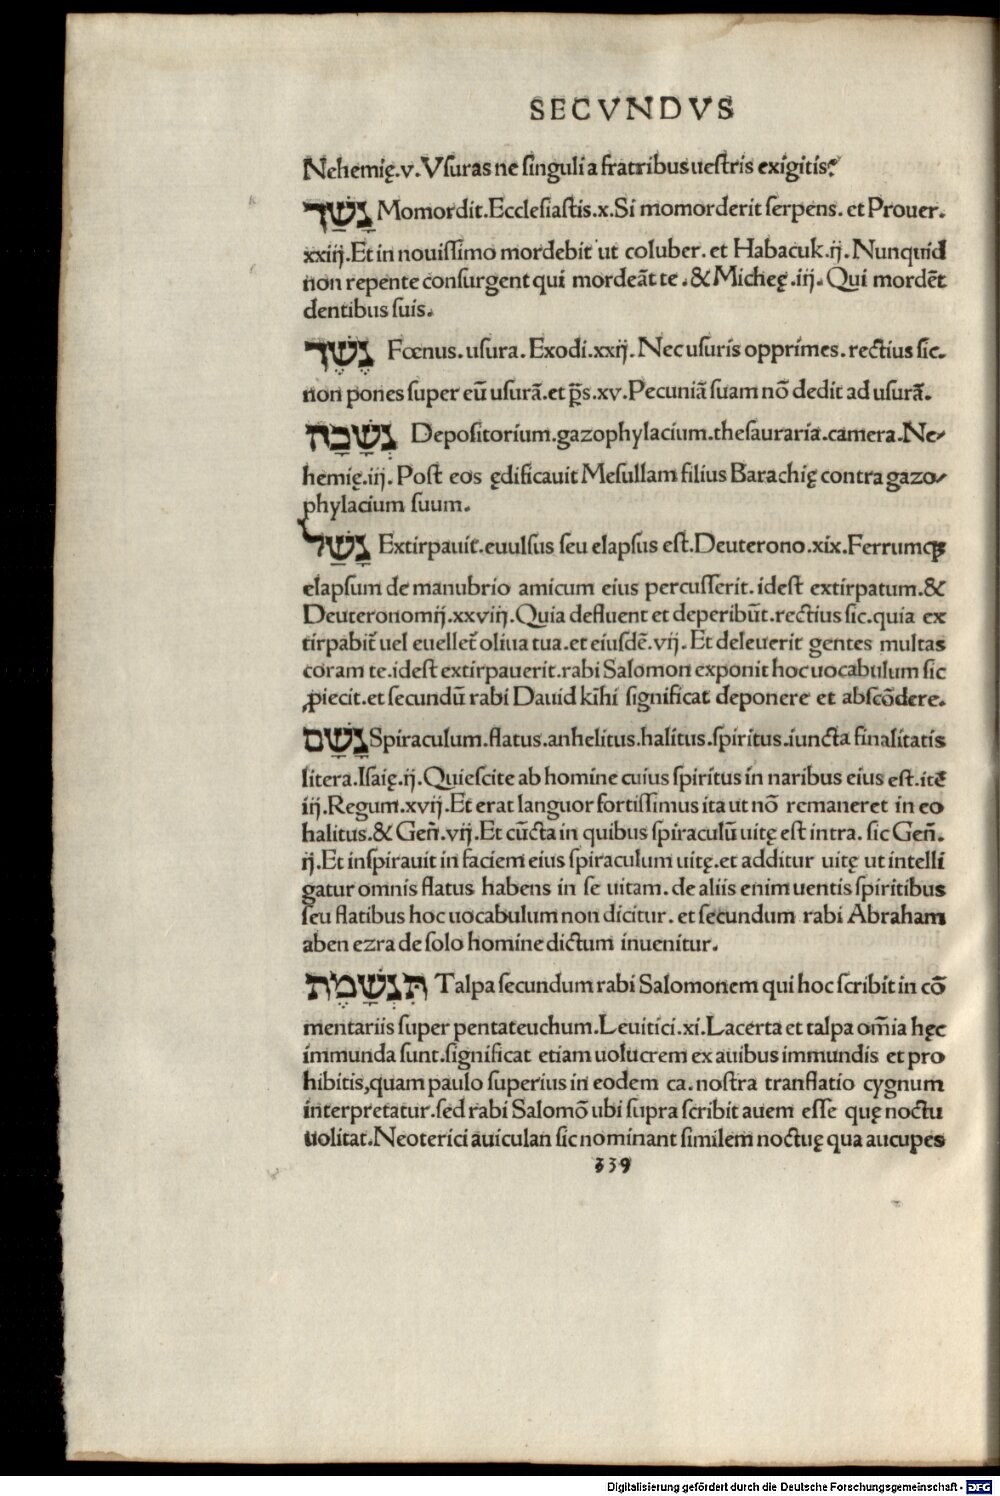 SECVNDVS
Nehemię.v.Vſuras ne ſinguli a fratribus ueſtris exigitis?
נָשַׁךְ Momordit.Eccleſiaſtis.x.Si momorderit ſerpens. et Prouer.
xxiij.Et in nouiſſimo mordebit ut coluber. et Habacuk.ij.Nunquid
non repente conſurgent qui mordeãt te.&Micheę.iij.Qui mordẽt
dentibus ſuis.
נֶשֶׁךְ Fœnus.uſura.Exodi.xxij.Nec uſuris opprimes.rectius ſic.
non pones ſuper eũ uſurã.et p̃s.xv.Pecuniã ſuam nõ dedit ad uſurã.
נִשְׁכָּה Depoſitorium.gazophylacium.theſauraria.camera.Ne⸗
hemię.iij.Poſt eos ędificauit Meſullam filius Barachię contra gazo⸗
phylacium ſuum.
נָשַׁל Extirpauit.euulſus ſeu elapſus eſt.Deuterono.xix.Ferrumqꝫ
elapſum de manubrio amicum eius percuſſerit.ideſt extirpatum.&
Deuteronomij.xxviij.Quia defluent et deperibũt.rectius ſic.quia ex
tirpabit̃ uel euellet̃ oliua tua.et eiuſdẽ.vij.Et deleuerit gentes multas
coram te.ideſt extirpauerit.rabi Salomon exponit hoc uocabulum ſic
ꝓiecit.et ſecundũ rabi Dauid kĩhi ſignificat deponere et abſcõdere.
נָשַׁם Spiraculum.flatus.anhelitus.halitus.ſpiritus.iuncta finalitatis
litera.Iſaię.ij.Quieſcite ab homine cuius ſpiritus in naribus eius eſt.itẽ
iij.Regum.xvij.Et erat languor fortiſſimus ita ut nõ remaneret in eo
halitus.&Geñ.vij.Et cũcta in quibus ſpiraculũ uitę eſt intra. ſic Geñ.
ij.Et inſpirauit in faciem eius ſpiraculum uitę.et additur uitę ut intelli
gatur omnis flatus habens in ſe uitam.de aliis enim uentis ſpiritibus
ſeu flatibus hoc uocabulum non dicitur. et ſecundum rabi Abraham
aben ezra de ſolo homine dictum inuenitur.
תִּנְשָׁמֶת Talpa ſecundum rabi Salomonem qui hoc ſcribit in cõ
mentariis ſuper pentateuchum.Leuitici.xi.Lacerta et talpa om̃ia hęc
immunda ſunt.ſignificat etiam uolucrem ex auibus immundis et pro
hibitis,quam paulo ſuperius in eodem ca.noſtra tranſlatio cygnum
interpretatur.ſed rabi Salomõ ubi ſupra ſcribit auem eſſe quę noctu
uolitat.Neoterici auiculan ſic nominant ſimilem noctuę qua aucupes
339
Digitalisierung gefördert durch die Deutsche Forschungsgemeinschaft - DFG